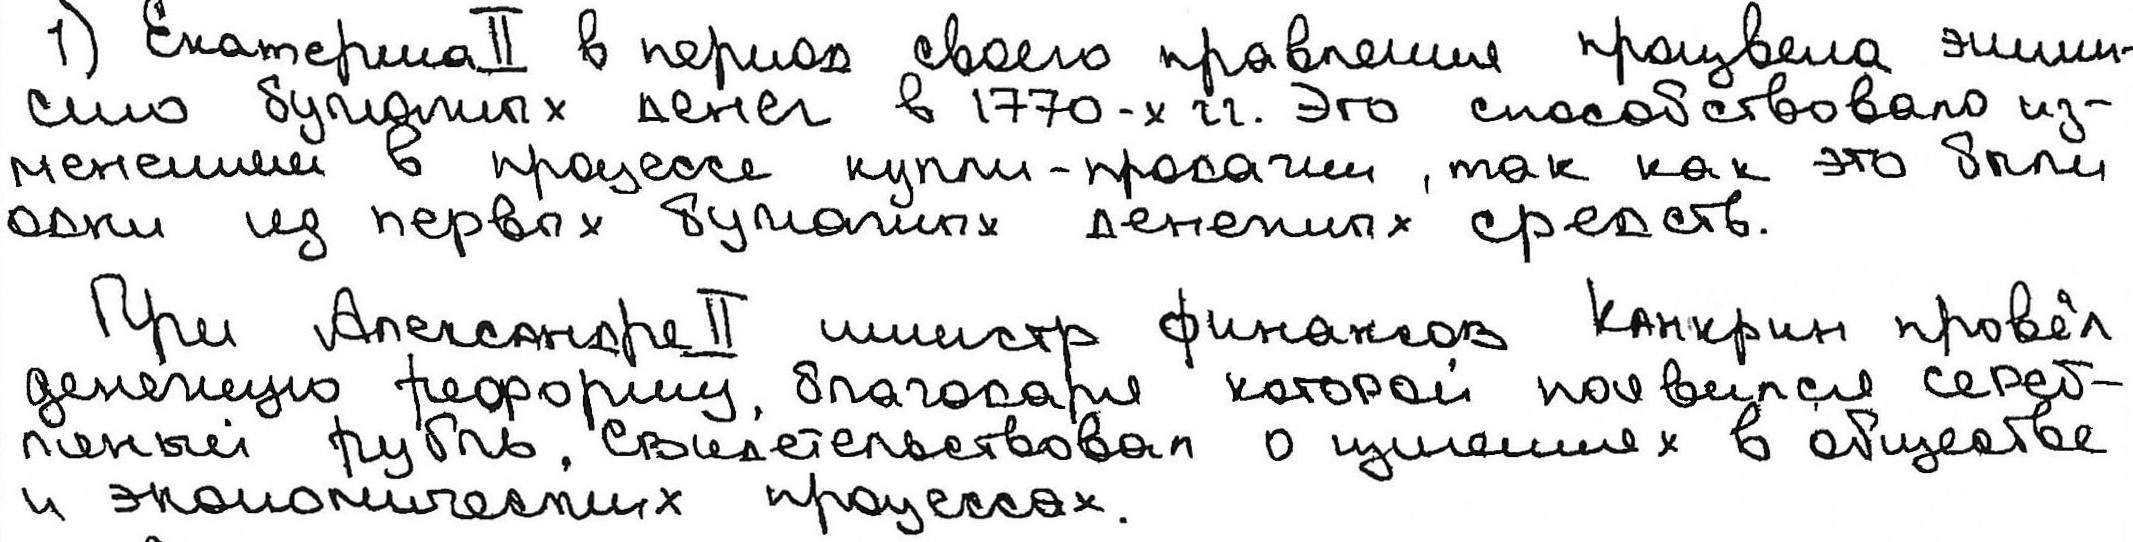 1) Екатерина II в период своего правления произвела эмис-
сию бумажных денег в 1770-х гг. Это способствовало из-
менениям в процессе купли-продажи, так как это были
одни из первых бумажных денежных средств.
При Александре II министр финансов Канкрин провёл
денежную реформу, благодаря которой появился сереб-
ряный рубль, свидетельствовал о изменениях в обществе
и экономических процессах.